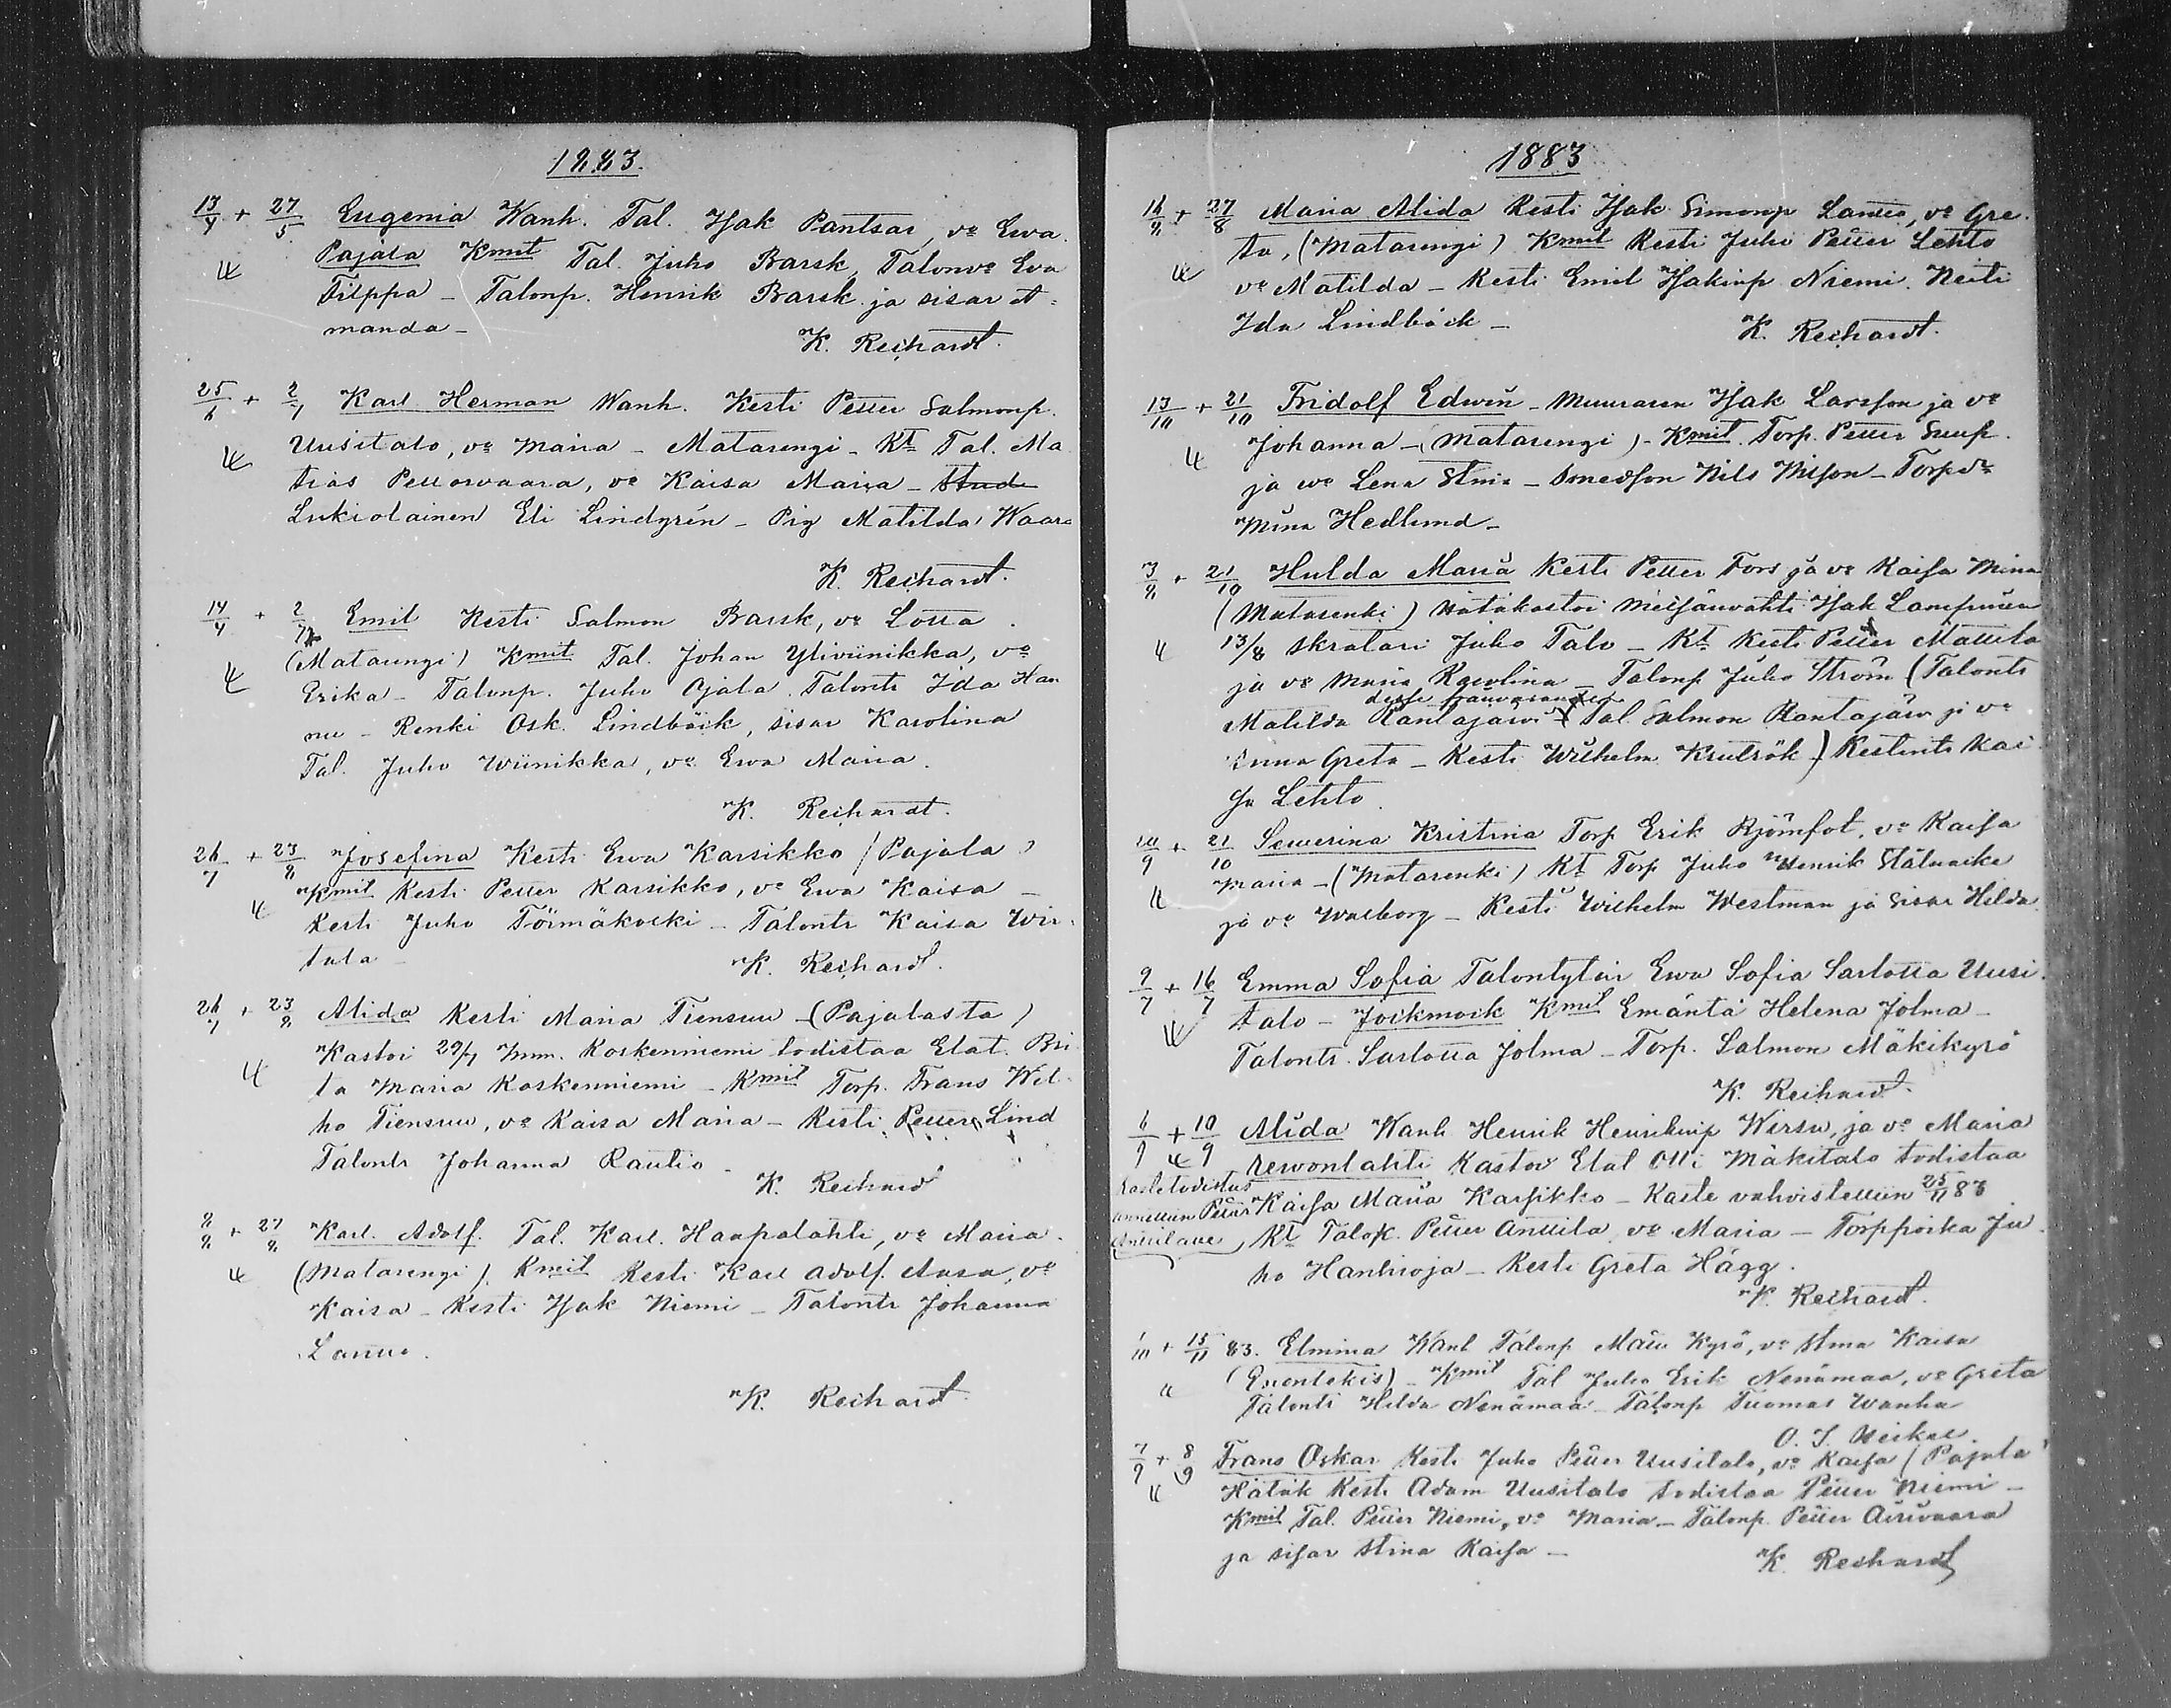 1883.
13/4 + 27/5 Eugenia Wanh. Tal. Isak Pantsar, vo Ewa
Pajala Kmit Tal. Juho Barsk, Talonvo Eva
Filppa - Talonp. Henrik Barsk ja sisar A-
manda -
K. Reichardt.
25/6 + 2/7 Karl Herman Wanh. Kesti Petter Salmonp.
Uusitalo, vo Maria - Matarengi - Kt Tal. Ma
tias Pellovaara, vo Kaisa Maria - Stud
Lukiolainen Eli Lindgrén - Pig Matilda Waara
K. Reichardt.
14/4 + 2/7 Emil Kesti Salmon Barsk, vo Lotta.
(Matarengi) Kmit Tal. Johan Yliviinikka, vo
Erika - Talonp. Juho Ojala. Talontr Ida Han
nu - Renki Osk. Lindbäck, sisar Karolina
Tal. Juho Wiinikka, vo Ewa Maria.
K. Reichardt.
26/7 + 23/8 Josefina Kesti Ewa Karsikko (Pajala)
Kmit Kesti Petter Karsikko, vo Ewa Kaisa -
Kesti Juho Törmäkoski - Talontr Kaisa Wir-
tala -
K. Reichardt.
26/7 + 23/8 Alida Kesti Maria Tiensuu - (Pajalasta)
Kastoi 29/7 Imm. Koskenniemi todistaa Elat. Bri
ta Maria Koskenniemi - Kmit Torp. Frans Wil-
ho Tiensuu, vo Kaisa Maria - Kesti Petter Lind
Talontr Johanna Rautio -
K. Reichardt
8/8 + 27/8 Karl Adolf. Tal. Karl Haapalahti, vo Maria.
(Matarengi). Kmit Kesti Karl Adolf. Aasa, vo
Kaisa - Kesti Isak Niemi - Talontr Johanna
Lantto.
K. Reichardt.
1883
16/8 + 27/8 Maria Alida Kesti Isak Simonp Lantto, vo Gre-
ta, (Matarengi) Kmit Kesti Juho Petter Lehto
vo Matilda - Kesti Emil Isakinp Niemi. Neiti
Ida Lindbäck -
K. Reichardt.
17/10 + 21/10 Fridolf Edwin - Muuraren Isak Larsson ja vo
Johanna - (Matarengi) - Kmit. Torp. Petter
ja wo Lena Stina - Smedson Nils Nilson - Torpvo
Mina Hedlund -
3/8 + 21/10 Hulda Maria Kesti Petter Fors ja vo Kaisa Mina
(Matarenki) Hätäkastoi Isak
13/8 skratari Juho Talo - Kt Kesti Petter Mattila
ja vo Maria Karolina - Talonp Juho Ström (Talontr
Matilda Rantajärvi Tal. Salmon Rantajärvi ja vo
Anna Greta - Kesti Wilhelm) Kestintr Kai-
sa Lehto.
10/9 + 21/10 Sewerina Kristina Torp Erik Björnfot, vo Kaisa
Maria - (Matarenki) Kt Torp Juho Henrik Stålnacke
ja vo Walborg - Kesti Wilhelm Westman ja sisar Hilda
9/7 + 16/7 Emma Sofia Talontytär Ewa Sofia Sarlotta Uusi-
talo - Jockmock Kmit Emäntä Helena Jolma -
Talontr. Sarlotta Jolma - Torp. Salmon Mäkikyrö
K. Reichardt.
6/9 + 10/9 Alida Wanh Henrik Henrikinp Wirsu, ja vo Maria
Rewonlahti Kastoi Elat Olli Mäkitalo todistaa
Kastetodistus annettiin Petter Anttilalle
Kaisa Maria Karsikko - Kaste vahvistettiin 25/11 83
Kt Talok. Petter Anttila, vo Maria - Torppoika Ju
ho Hanhioja - Kesti Greta Hägg.
K. Reichardt.
1/10 + 15/11 83. Elmina Wanh Talonp Matti Kyrö, vo Stina Kaisa
(Enontekis) - Kmit Tal Juho Erik Nenämaa, vo Greta
Talontr Hilda Nenämaa - Talonp Tuomas Wanha
7/9 + 8/9 Frans Oskar Kesti Juho Petter Uusitalo, vo Kaisa (Pajala)
Hätäk Kesti Adam Uusitalo todistaa Petter Niemi -
Kmit Tal. Petter Niemi, vo Maria - Talonp. Petter Airivaara
ja sisar Stina Kaisa -
K. Reichardt